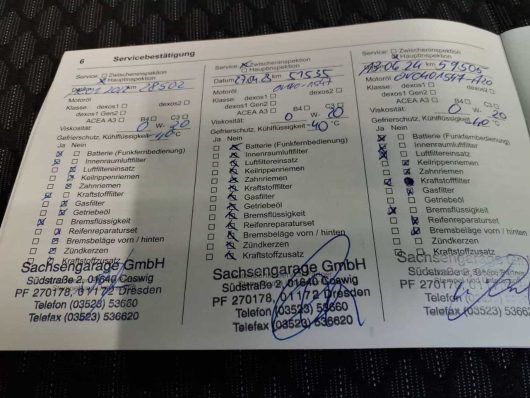 6 Servicebestätigung
Service: Zwischeninspektion
Hauptinspektion
km 28502
Motoröl
Klasse: dexos1 dexos2
dexos1 Gen2
ACEA A3 B4 C3
Viskosität: 0 W- 20
Gefrierschutz, Kühlflüssigkeit -40 °C
Ja Nein
Batterie (Funkfernbedienung)
Innenraumluftfilter
Luftfiltereinsatz
Keilrippenriemen
Zahnriemen
Kraftstofffilter
Gasfilter
Getriebeöl
Bremsflüssigkeit
Reifenreparaturset
Bremsbeläge vorn / hinten
Zündkerzen
Kraftstoffzusatz
Sachsengarage GmbH
Südstraße 2, 01640 Coswig
PF 270178, 01172 Dresden
Telefon (03523) 53660
Telefax (03523) 536620
Service: Zwischeninspektion
Hauptinspektion
Datum 27.04.23 km 51535
Motoröl
Klasse: dexos1 dexos2
dexos1 Gen2
ACEA A3 B4 C3
Viskosität: 0 W- 20
Gefrierschutz, Kühlflüssigkeit -40 °C
Ja Nein
Batterie (Funkfernbedienung)
Innenraumluftfilter
Luftfiltereinsatz
Keilrippenriemen
Zahnriemen
Kraftstofffilter
Gasfilter
Getriebeöl
Bremsflüssigkeit
Reifenreparaturset
Bremsbeläge vorn / hinten
Zündkerzen
Kraftstoffzusatz
Sachsengarage GmbH
Südstraße 2, 01640 Coswig
PF 270178, 01172 Dresden
Telefon (03523) 53660
Telefax (03523) 536620
Service: Zwischeninspektion
Hauptinspektion
.06.24 km 59505
Motoröl
Klasse: dexos1 dexos2
dexos1 Gen2
ACEA A3 B4 C3
Viskosität: 0 W- 20
Gefrierschutz, Kühlflüssigkeit -40 °C
Ja Nein
Batterie (Funkfernbedienung)
Innenraumluftfilter
Luftfiltereinsatz
Keilrippenriemen
Zahnriemen
Kraftstofffilter
Gasfilter
Getriebeöl
Bremsflüssigkeit
Reifenreparaturset
Bremsbeläge vorn / hinten
Zündkerzen
Kraftstoffzusatz
Sachsengarage GmbH
Südstraße 2,
PF 270178, 01172 Dresden
Telefon (03523) 53660
Telefax (03523) 536620